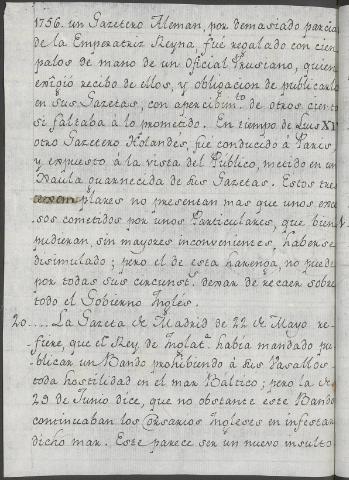 1756. un Gazetero Aleman, por demasiado parcial
de la Emperatriz Reyna, fué regalado con cien
palos de mano de un Oficial Prusiano, quien
exîgió recibo de ellos, y obligacion de publicarlo
en sus Gazetas, con apercibim.to de otros ciento
si faltaba á lo prometido. En tiempo de Luis XIV
otro Gazetero Holandés, fue conducido à Paris,
y expuesto à la vista del Publico, metido en una
Xaula guarnecida de sus Gazetas. Estos tres
exemplares no presentan mas que unos exce
sos cometidos por unos Particulares, que bien
pudieran, sin mayores inconvenientes, haberse
disimulado; pero el de esta harenga, no puede
por todas sus circunst. dexar de recaer sobre
todo el Gobierno Ingles.
20.... La Gazeta de Madrid de 22 de Mayo re-
fiere, que el Rey de Inglat.a habia mandado pu
blicar un Bando prohibiendo á sus Vasallos
toda hostilidad en el mar Baltico; pero la de
29 de Junio dice, que no obstante este Bando
continuaban los Corsarios Ingleses en infestar
dicho mar. Este parece ser un nuevo insulto